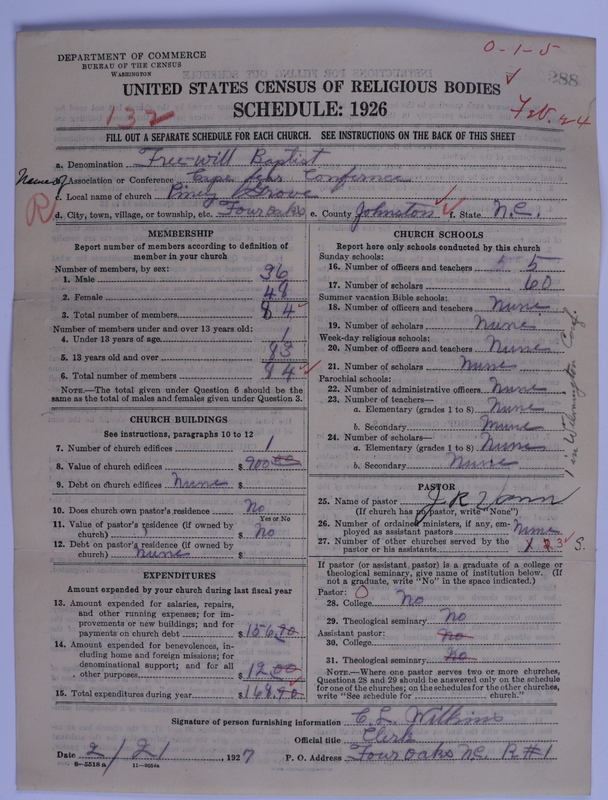 0-1-5
DEPARTMENT OF COMMERCE
BUREAU OF THE CENSUS
WASHINGTON
288
UNITED STATES CENSUS OF RELIGIOUS BODIES
SCHEDULE: 1926
132
Feb. 24
FILL OUT A SEPARATE SCHEDULE FOR EACH CHURCH. SEE INSTRUCTIONS ON THE BACK OF THIS SHEET
a. Denomination Free-will Baptist
Name of b. Association or Conference Cape Fear Conference
c. Local name of church Piney Grove
R
d. City, town, village, or township, etc. Four oaks e. County Johnston f. State N.C.
MEMBERSHIP
Report number of members according to definition of
member in your church
Number of members, by sex:
1. Male 36
2. Female 48
3. Total number of members 84
Number of members under and over 13 years old:
4. Under 13 years of age 1
5. 13 years old and over 83
6. Total number of members 84
NOTE.—The total given under Question 6 should be
same as the total of males and females given under Question 3.
CHURCH BUILDINGS
See instructions, paragraphs 10 to 12
7. Number of church edifices 1
8. Value of church edifices $ 900.00
9. Debt on church edifices None $
10. Does church own pastor's residence No
Yes or No
11. Value of pastor's residence (if owned by
church) $ No
12. Debt on pastor's residence (if owned by
church) None $
EXPENDITURES
Amount expended by your church during last fiscal year
13. Amount expended for salaries, repairs,
and other running expenses; for im-
provements or new buildings; and for
payments on church debt $ 156.90
14. Amount expended for benevolences, in-
cluding home and foreign missions; for
denominational support; and for all
other purposes $ 12.00
15. Total expenditures during year $ 168.90
CHURCH SCHOOLS
Report here only schools conducted by this church
Sunday schools:
16. Number of officers and teachers 5
17. Number of scholars 60
Summer vacation Bible schools:
18. Number of officers and teachers None
19. Number of scholars None
Week-day religious schools:
20. Number of officers and teachers None
21. Number of scholars None
Parochial schools:
22. Number of administrative officers None
23. Number of teachers—
a. Elementary (grades 1 to 8) None
b. Secondary None
24. Number of scholars—
a. Elementary (grades 1 to 8) None
b. Secondary None
1 in Wilmington Conf.
PASTOR
25. Name of pastor J. R.
(If church has no pastor, write "None")
26. Number of ordained ministers, if any, em-
ployed as assistant pastors None
27. Number of other churches served by the
pastor or his assistants 3 S.
If pastor (or assistant pastor) is a graduate of a college or
theological seminary, give name of institution below. (If
not a graduate, write "No" in the space indicated.)
Pastor: O
28. College No
29. Theological seminary No
Assistant pastor:
30. College No
31. Theological seminary No
NOTE.—Where one pastor serves two or more churches,
Questions 28 and 29 should be answered only on the schedule
for one of the churches; on the schedules for the other churches,
write "See schedule for church."
Signature of person furnishing information C. L. Wilkins
Official title Clerk
Date 2/21, 1927
P. O. Address Four oaks N.C. R #1
8—5518 a
11—9054a